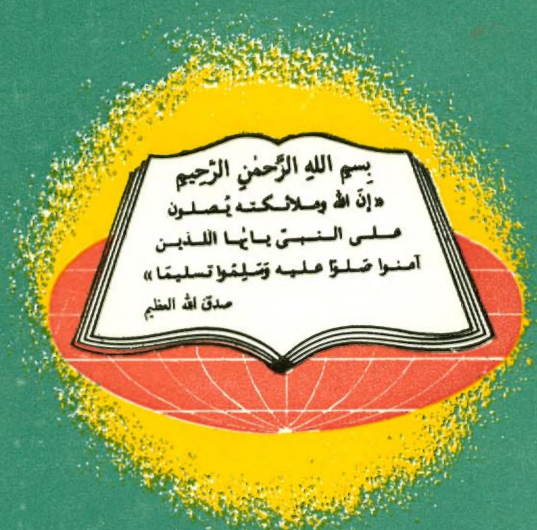 بِسمِ اللهِ الرَّحمٰنِ الرَّحِيمِ
«إنَّ الله وملائكته يُصلون
على النبيّ يايُّها اللذين
آمنوا صَلوّا عليه وَسَلِمّوا تسليمًا»
صدقَ الله العظيم